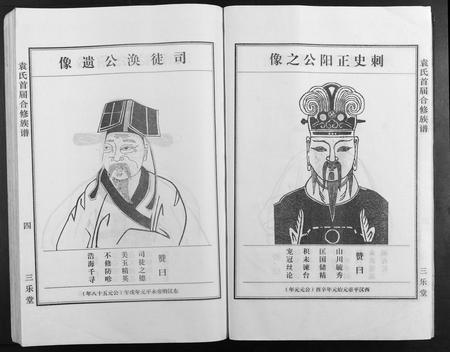 刺史正阳公之像
赞曰
山川毓秀
匡国储精
积未谏台
宠冠丝论
西汉平帝元始元年辛酉（公元元年）
袁氏首届合修族谱
三乐堂
司徒涣公遗像
赞曰
司徒之德
美玉精英
不修防畛
浩海千寻
东汉明帝永平元年戊午（公元五十八年）
袁氏首届合修族谱
四
三乐堂